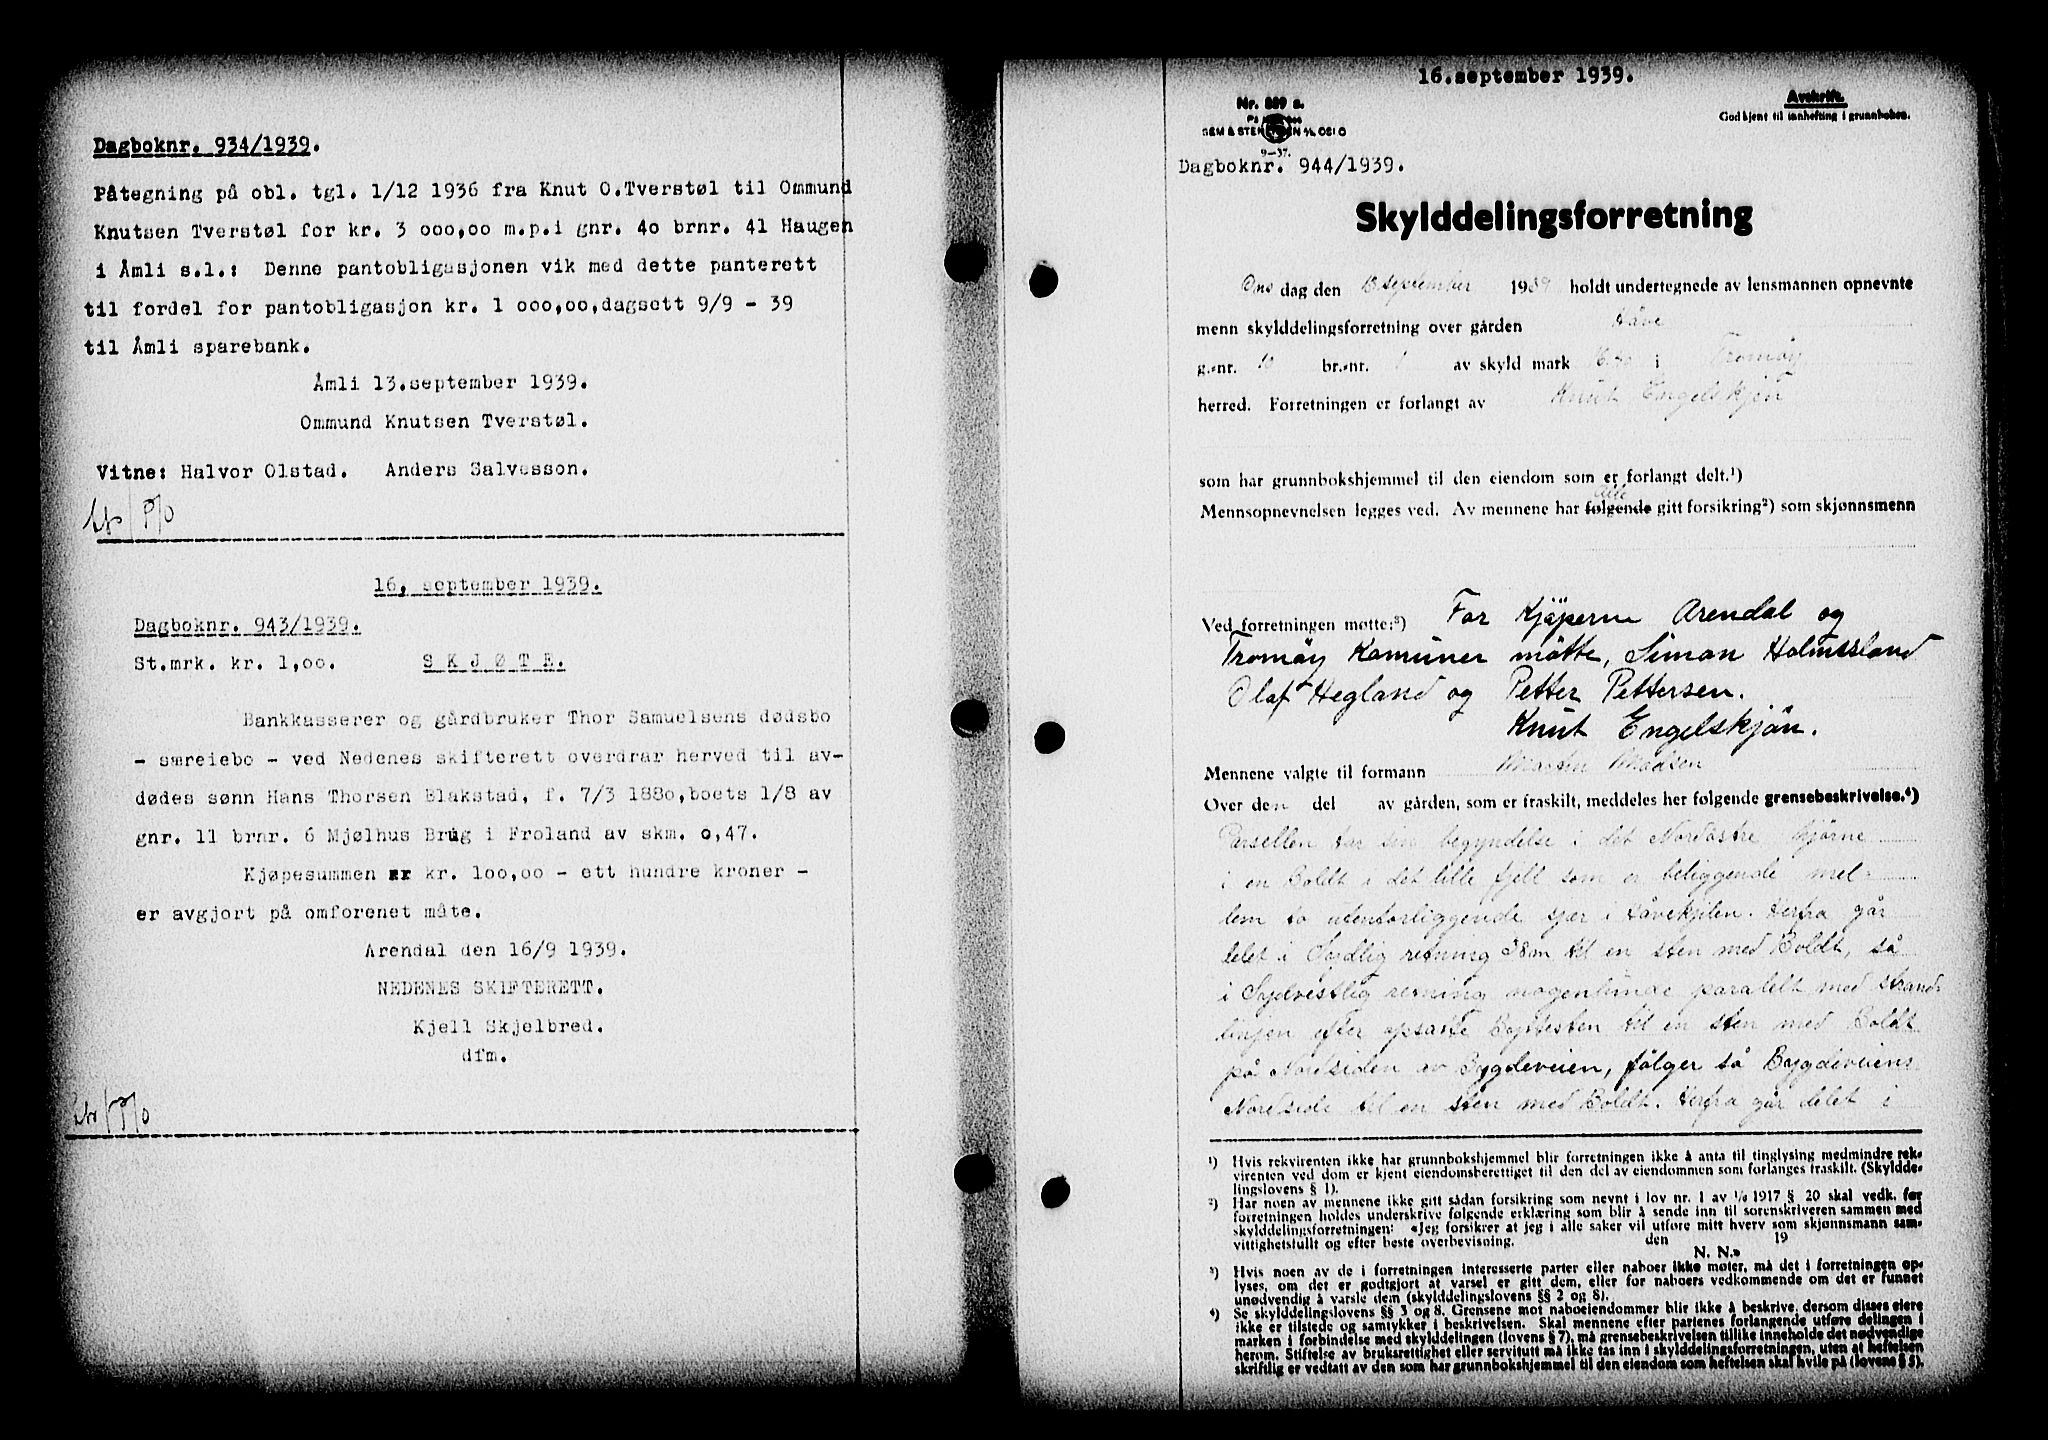 Dagboknr. 934/1939.
Påtegning på obl. tgl. 1/12 1936 fra Knut O.Tverstøl til Ommund
Knutsen Tverstøl for kr. 3 000,00 m.p.i gnr. 40 brnr. 41 Haugen
i Åmli s.l.: Denne pantobligasjonen vik med dette panterett
til fordel for pantobligasjon kr. 1 000,00,dagsett 9/9 - 39
til Åmli sparebank.
Åmli 13.september 1939.
Ommund Knutsen Tverstøl.
Vitne: Halvor Olstad. Anders Salvesson.
16. september 1939.
Dagboknr. 943/1939.
St.mrk. kr. 1,00. SKJØTE.
Bankkasserer og gårdbruker Thor Samuelsens dødsbo
- særeiebo - ved Nedenes skifterett overdrar herved til av-
dødes sønn Hans Thorsen Blakstad, f. 7/3 1880,boets 1/8 av
gnr. 11 brnr. 6 Mjølhus Brug i Froland av skm. 0,47.
Kjøpesummen er kr. 100,00 - ett hundre kroner -
er avgjort på omforenet måte.
Arendal den 16/9 1939.
NEDENES SKIFTERETT.
Kjell Skjelbred.
dfm.
16.september 1939.
Nr. 889 a.
SEM & STENERSEN A/S, OSLO
9-37.
Avskrift.
Godkjent til innhefting i grunnboken.
Dagboknr. 944/1939.
Skylddelingsforretning
Ons dag den 13 september 1939 holdt undertegnede av lensmannen opnevnte
menn skylddelingsforretning over gården Håve
g.-nr. 10 br.-nr. 1 av skyld mark i Tromøy
herred. Forretningen er forlangt av Knut Engelskjön
som har grunnbokshjemmel til den eiendom som er forlangt delt.¹)
Mennsopnevnelsen legges ved. Av mennene har følgende alle gitt forsikring²) som skjønnsmenn
Ved forretningen møtte:³) For Kjöperne Arendal og
Tromöy Komuner mötte, Simon Holmesland
Olaf Hegland og Petter Pettersen.
Knut Engelskjön.
Mennene valgte til formann Martin Madsen
Over den del av gården, som er fraskilt, meddeles her følgende grensebeskrivelse.⁴)
Parsellen tar sin begyndelse i det Nordöstre hjörne
i en Boldt i det lille fjell som er beliggende mel-
lem to utenforliggende sjær i Håvekjilen. Herfra går
delet i Sydlig retning 38m til en sten med Boldt, så
i Sydvestlig retning nogenlunde paralelt med strand-
linjen efter opsatte Bytesten til en sten med Boldt
på Nordsiden av Bygdeveien, fölger så Bygdeveiens
Nordside til en sten med Boldt. Herfra går delet i
¹) Hvis rekvirenten ikke har grunnbokshjemmel blir forretningen ikke å anta til tinglysing medmindre rek-
virenten ved dom er kjent eiendomsberettiget til den del av eiendommen som forlanges fraskilt. (Skyldde-
lingslovens § 1).
²) Har noen av mennene ikke gitt sådan forsikring som nevnt i lov nr. 1 av 1/6 1917 § 20 skal vedk. før
forretningen holdes underskrive følgende erklæring som blir å sende inn til sorenskriveren sammen med
skylddelingsforretningen: «Jeg forsikrer at jeg i alle saker vil utføre mitt hverv som skjønnsmann sam-
vittighetsfullt og efter beste overbevisning. den 19
N. N.»
³) Hvis noen av de i forretningen interesserte parter eller naboer ikke møter, må det i forretningen op-
lyses, om det er godtgjort at varsel er gitt dem, eller for naboers vedkommende om det er funnet
unødvendig å varsle dem (skylddelingslovens §§ 2 og 8).
⁴) Se skylddelingslovens §§ 3 og 8. Grensene mot naboeiendommer blir ikke å beskrive, dersom disses eiere
ikke er tilstede og samtykker i beskrivelsen. Skal mennene efter partenes forlangende utføre delingen i
marken i forbindelse med skylddelingen (lovens § 7), må grensebeskrivelsen tillike inneholde det nødvendige
herom. Stiftelse av bruksrettighet eller servitutt må ikke tas inn i skylddelingsforretningen, uten at heftelsen
skriftlig er vedtatt av den som har grunnbokshjemmel til den eiendom som heftelsen skal hvile på (lovens § 5).